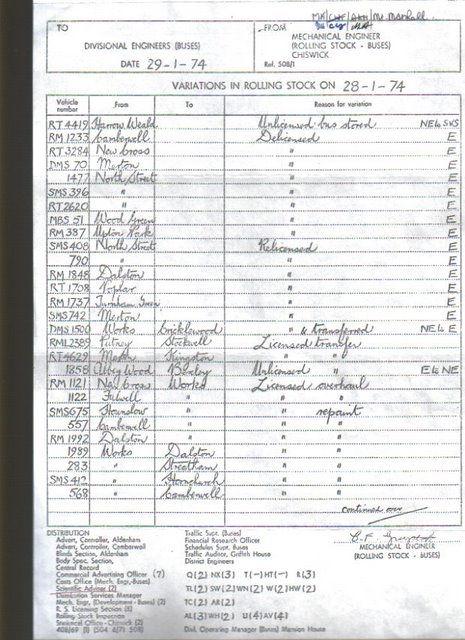 MR/CHF/AHH/Mr. Marshall.
TO
FROM
DIVISIONAL ENGINEERS (BUSES)
MECHANICAL ENGINEER
(ROLLING STOCK - BUSES)
CHISWICK
DATE 29-1-74
Ref. 508/1
VARIATIONS IN ROLLING STOCK ON 28-1-74
Vehicle number From To Reason for variation
RT 4419 Harrow Weald Unlicensed bus stored NE to SVS
RM 1233 Camberwell Delicensed E
RT 3284 New Cross " E
DMS 70 Merton " E
1477 North Street " E
SMS 396 " " E
RT 2620 " " E
MBS 51 Wood Green " E
RM 387 Upton Park " E
SMS 408 North Street Relicensed E
790 " " E
RM 1848 Dalston " E
RT 1708 Poplar " E
RM 1737 Turnham Green " E
SMS 742 Merton " E
DMS 1500 Works Cricklewood " & transferred NE to E
RML 2389 Putney Stockwell Licensed transfer
RT 4629 Merton Kingston " "
1858 Abbey Wood Bexley Unlicensed " E to NE
RM 1121 New Cross Works Licensed overhaul
1122 Fulwell " " "
SMS 675 Hounslow " " repaint
557 Camberwell " " "
RM 1992 Dalston " " "
1989 Works Dalston " "
283 " Streatham " "
SMS 412 " Hornchurch " "
568 " Camberwell " "
continued over
DISTRIBUTION
Advert. Controller, Aldenham
Advert. Controller, Camberwell
Blinds Section, Aldenham
Body Spec. Section,
Central Record
Commercial Advertising Officer (7)
Costs Office (Mech. Engr.-Buses)
Scientific Adviser (2)
Distribution Services Manager
Mech. Engr. (Development - Buses) (2)
R. S. Licensing Section (8)
Rolling Stock Inspection
Statistical Office - Chiswick (2)
408/69 (1) (504 6/7) 508)
Traffic Supt. (Buses)
Financial Research Officer
Schedules Supt. Buses
Traffic Auditor, Griffith House
District Engineers
Q(2) NX(3) T(-) HT(-) R(3)
TL(2) SW(2) WN(2) W(2) HW(2)
TC(2) AR(2)
AL(3) WH(2) U(4) AV(4)
Divl. Operating Manager (Buses) Mansion House
MECHANICAL ENGINEER
(ROLLING STOCK - BUSES)